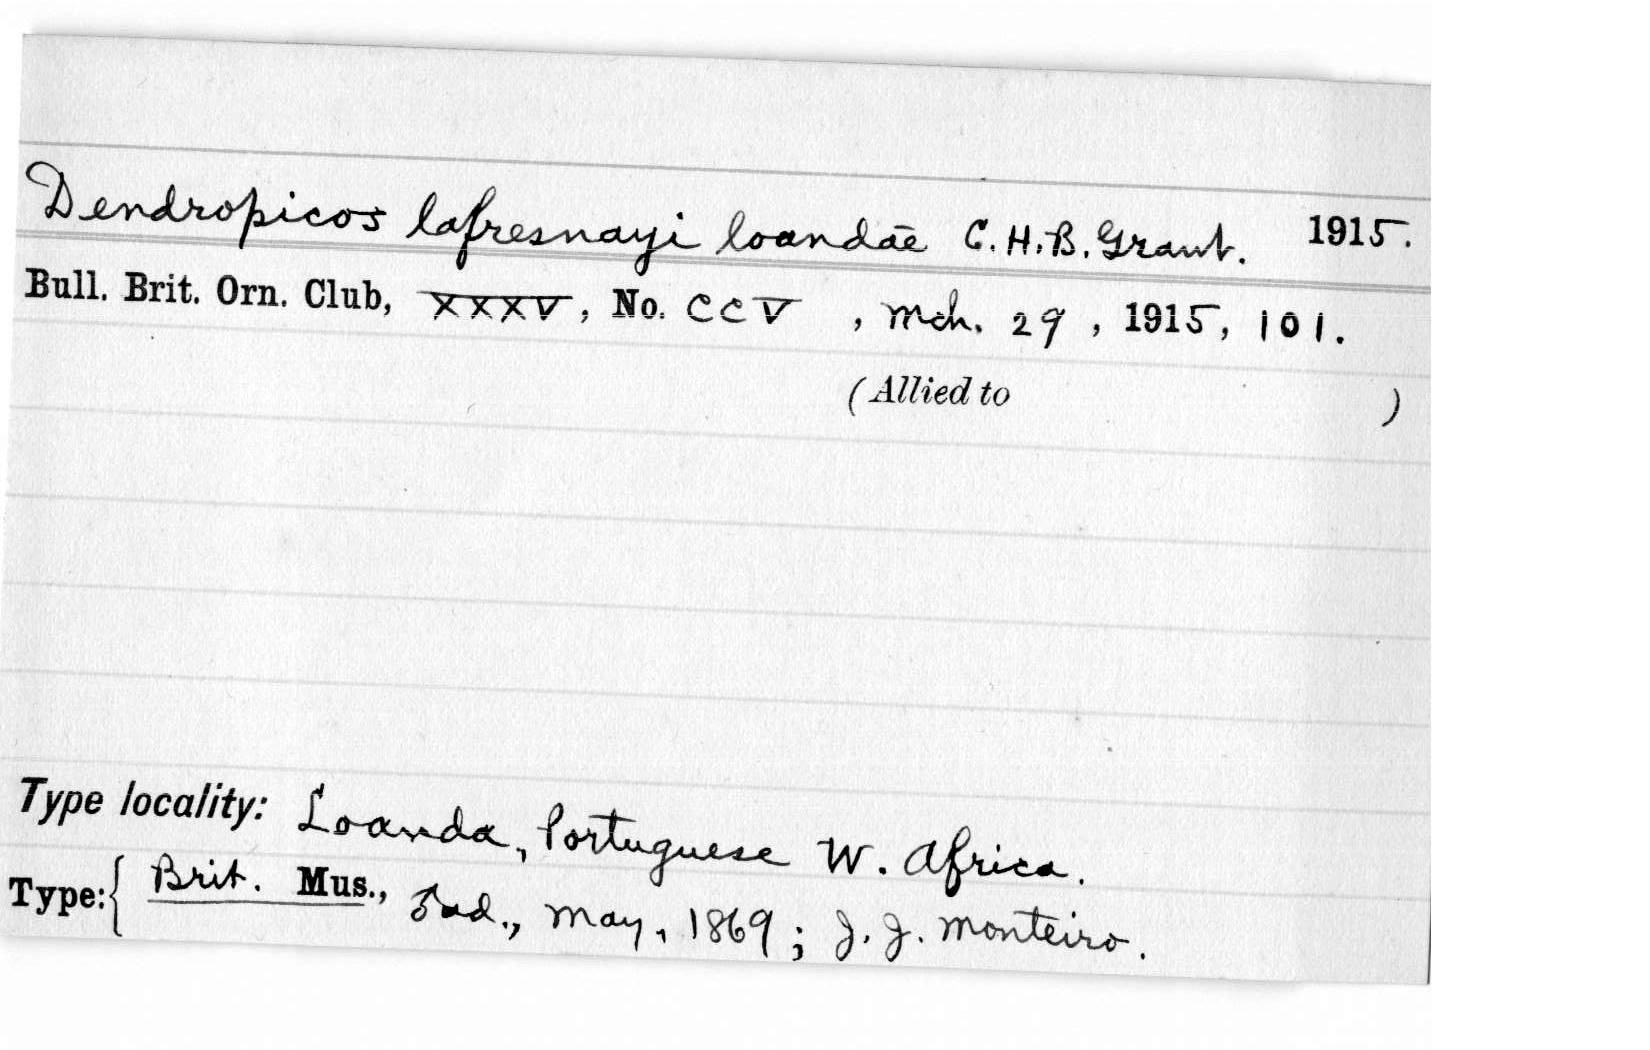 Dendropicos lafresnayi loandae C.H.B. Grant. 1915.
Bull. Brit. Orn. Club, XXXV, No. CCV , Mch. 29 , 1915, 101.
(Allied to )
Type locality: Loanda, Portuguese W. Africa.
Type:{ Brit. Mus., ♂ ad., May, 1869; J. J. Monteiro.